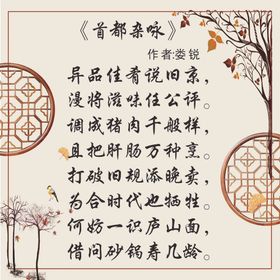 《首都杂咏》
作者:娄锐
异品佳肴说旧京，
漫将滋味任公评。
调成猪肉千般样，
且把肝肠万种烹。
打破旧规添晚卖，
为合时代也牺牲。
何妨一识庐山面，
借问砂锅寿几龄。